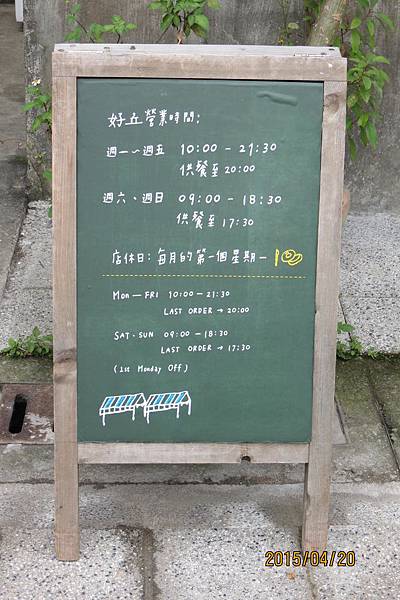 好丘營業時間:
週一～週五 10:00 - 21:30
供餐至 20:00
週六、週日 09:00 - 18:30
供餐至 17:30
店休日: 每月的第一個星期一
MON — FRI 10:00 - 21:30
LAST ORDER → 20:00
SAT、SUN 09:00 - 18:30
LAST ORDER → 17:30
(1st Monday Off)
2015/04/20